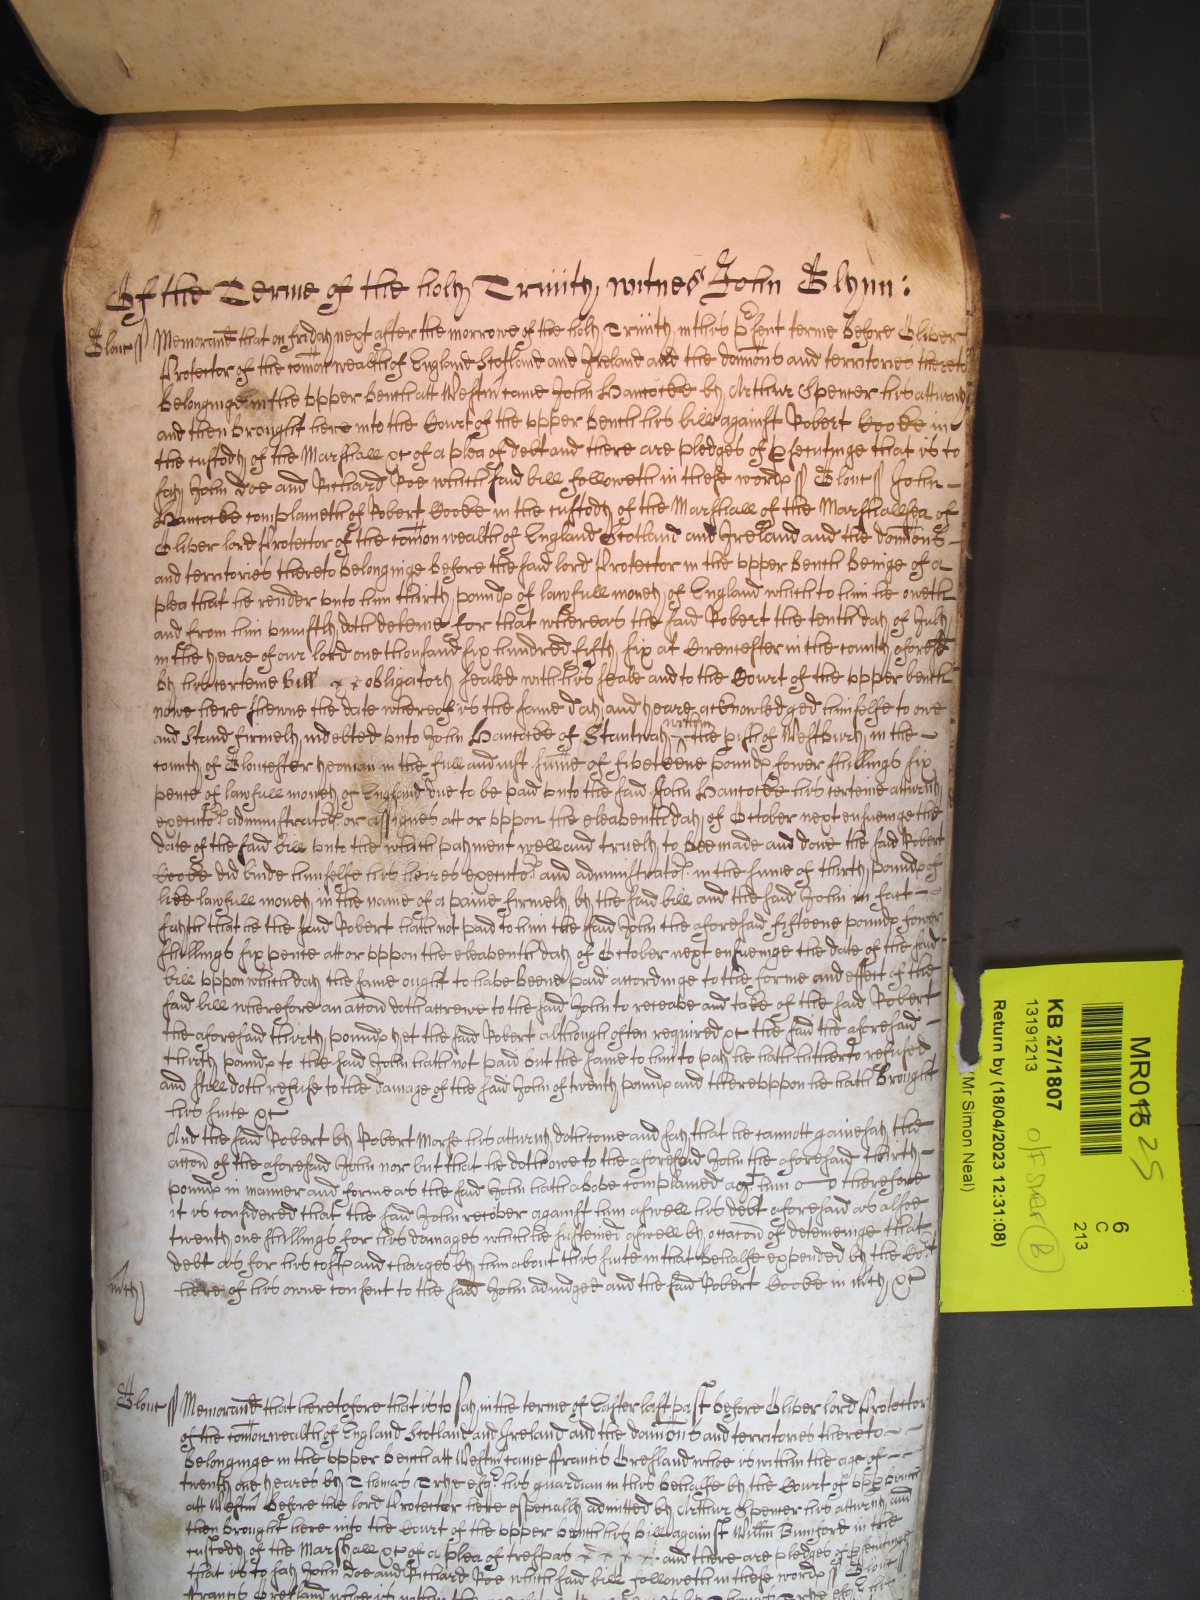 Of the Terme of the holy Trinity, witnes John Glynn:
Glouc ss Memorand that on friday next after the morrowe of the holy Trinity in this psent terme before Oliver
Protector of the comon wealth of England Scotland and Ireland and the domons and territories thereto
belonginge in the vpper bench att Westm came John Hancocke by Arthur Spencer his atturny
and then brought here into the Court of the vpper bench his bill against Robert Cooke in
the custody of the Marshall &c of a plea of debt and there are pledges of psecutinge that is to
say John Doe and Richard Roe which said bill followeth in these words ss Glouc ss John
Hancocke complaineth of Robert Cooke in the custody of the Marshall of the Marshallsea of
Oliver lord Protector of the comon wealth of England Scotland and Ireland and the domons
and territories thereto belonginge before the said lord Protector in the vpper bench beinge of a
plea that he render vnto him thirty pounds of lawfull money of England which to him he oweth
and from him vniustly doth deteine for that whereas the said Robert the tenth day of July
in the yeare of our lord one thousand six hundred fifty six at Cirencester in the county aforesd
by his certeine bill x x obligatory sealed with his seale and to the Court of the vpper bench
nowe here shewne the date whereof is the same day and yeare acknowledged himselfe to owe
and stand firmely indebted vnto John Hancocke of Stantway within the pish of Westbury in the
county of Gloucester yeoman in the full and iust sume of fiveteene pounds fower shillings six
pence of lawfull money of England due to be paid vnto the said John Hancocke his certeine atturny
executors administrators or assignes att or vppon the eleaventh day of October next ensueinge the
date of the said bill vnto the which payment well and truely to bee made and done the said Robert
Cooke did binde himselfe his heires executors and administrators in the sume of thirty pounds of
like lawfull money in the name of a paine firmely by the said bill and the said John in fact
sayth that he the said Robert hath not paid to him the said John the aforesaid fifteene pounds fower
shillings six pence att or vppon the eleaventh day of October next ensueinge the date of the said
bill vppon which day the same ought to have beene paid accordinge to the forme and effect of the
said bill wherefore an accon doth accrewe to the said John to receave and take of the said Robert
the aforesaid thirty pounds yet the said Robert although often required &c the said the aforesaid
thirty pounds to the said John hath not paid but the same to him to pay he hath hitherto refused
and still doth refuse to the damage of the said John of twenty pounds and therevppon he hath brought
his suite &c
And the said Robert by Robert Morse his atturny doth come and say that he cannott gainesay the
accon of the aforesaid John nor but that he doth owe to the aforesaid John the aforesaid thirty
pounds in manner and forme as the said John hath above complained agt him therefore
it is considered that the said John recover against him aswell his debt aforesaid as alsoe
twenty one shillings for his damages which he susteined aswell by occacon of deteineinge that
debt as for his costs and charges by him about this suite in that behalfe expended by the Cort
mcy here of his owne consent to the said John adiudged and the said Robert Cooke in mcy &c
Glouc ss Memorand that heretofore that is to say in the terme of Easter last past before Oliver lord Protector
of the comon wealth of England Scotland and Ireland and the domons and territories thereto
belonginge in the vpper bench att Westm came Francis Gressland whoe is within the age of
twenty one yeares by Thomas Trye esqr his guardian in this behalfe by the Court of vpper bench
att Westm before the lord Protector here especially admitted by Arthur Spencer his atturny and
then brought here into the Court of the vpper bench his bill against Willm Bumford in the
custody of the Marshall &c of a plea of trespas x x x x and there are pledges of psecutinge
that is to say John Doe and Richard Roe which said bill followeth in these words ss Glouc ss
MR015 25
6
C
213
KB 27/1807
13191213
O/F Shelf B
Return by (18/04/2023 12:31:08)
(Mr Simon Neal)